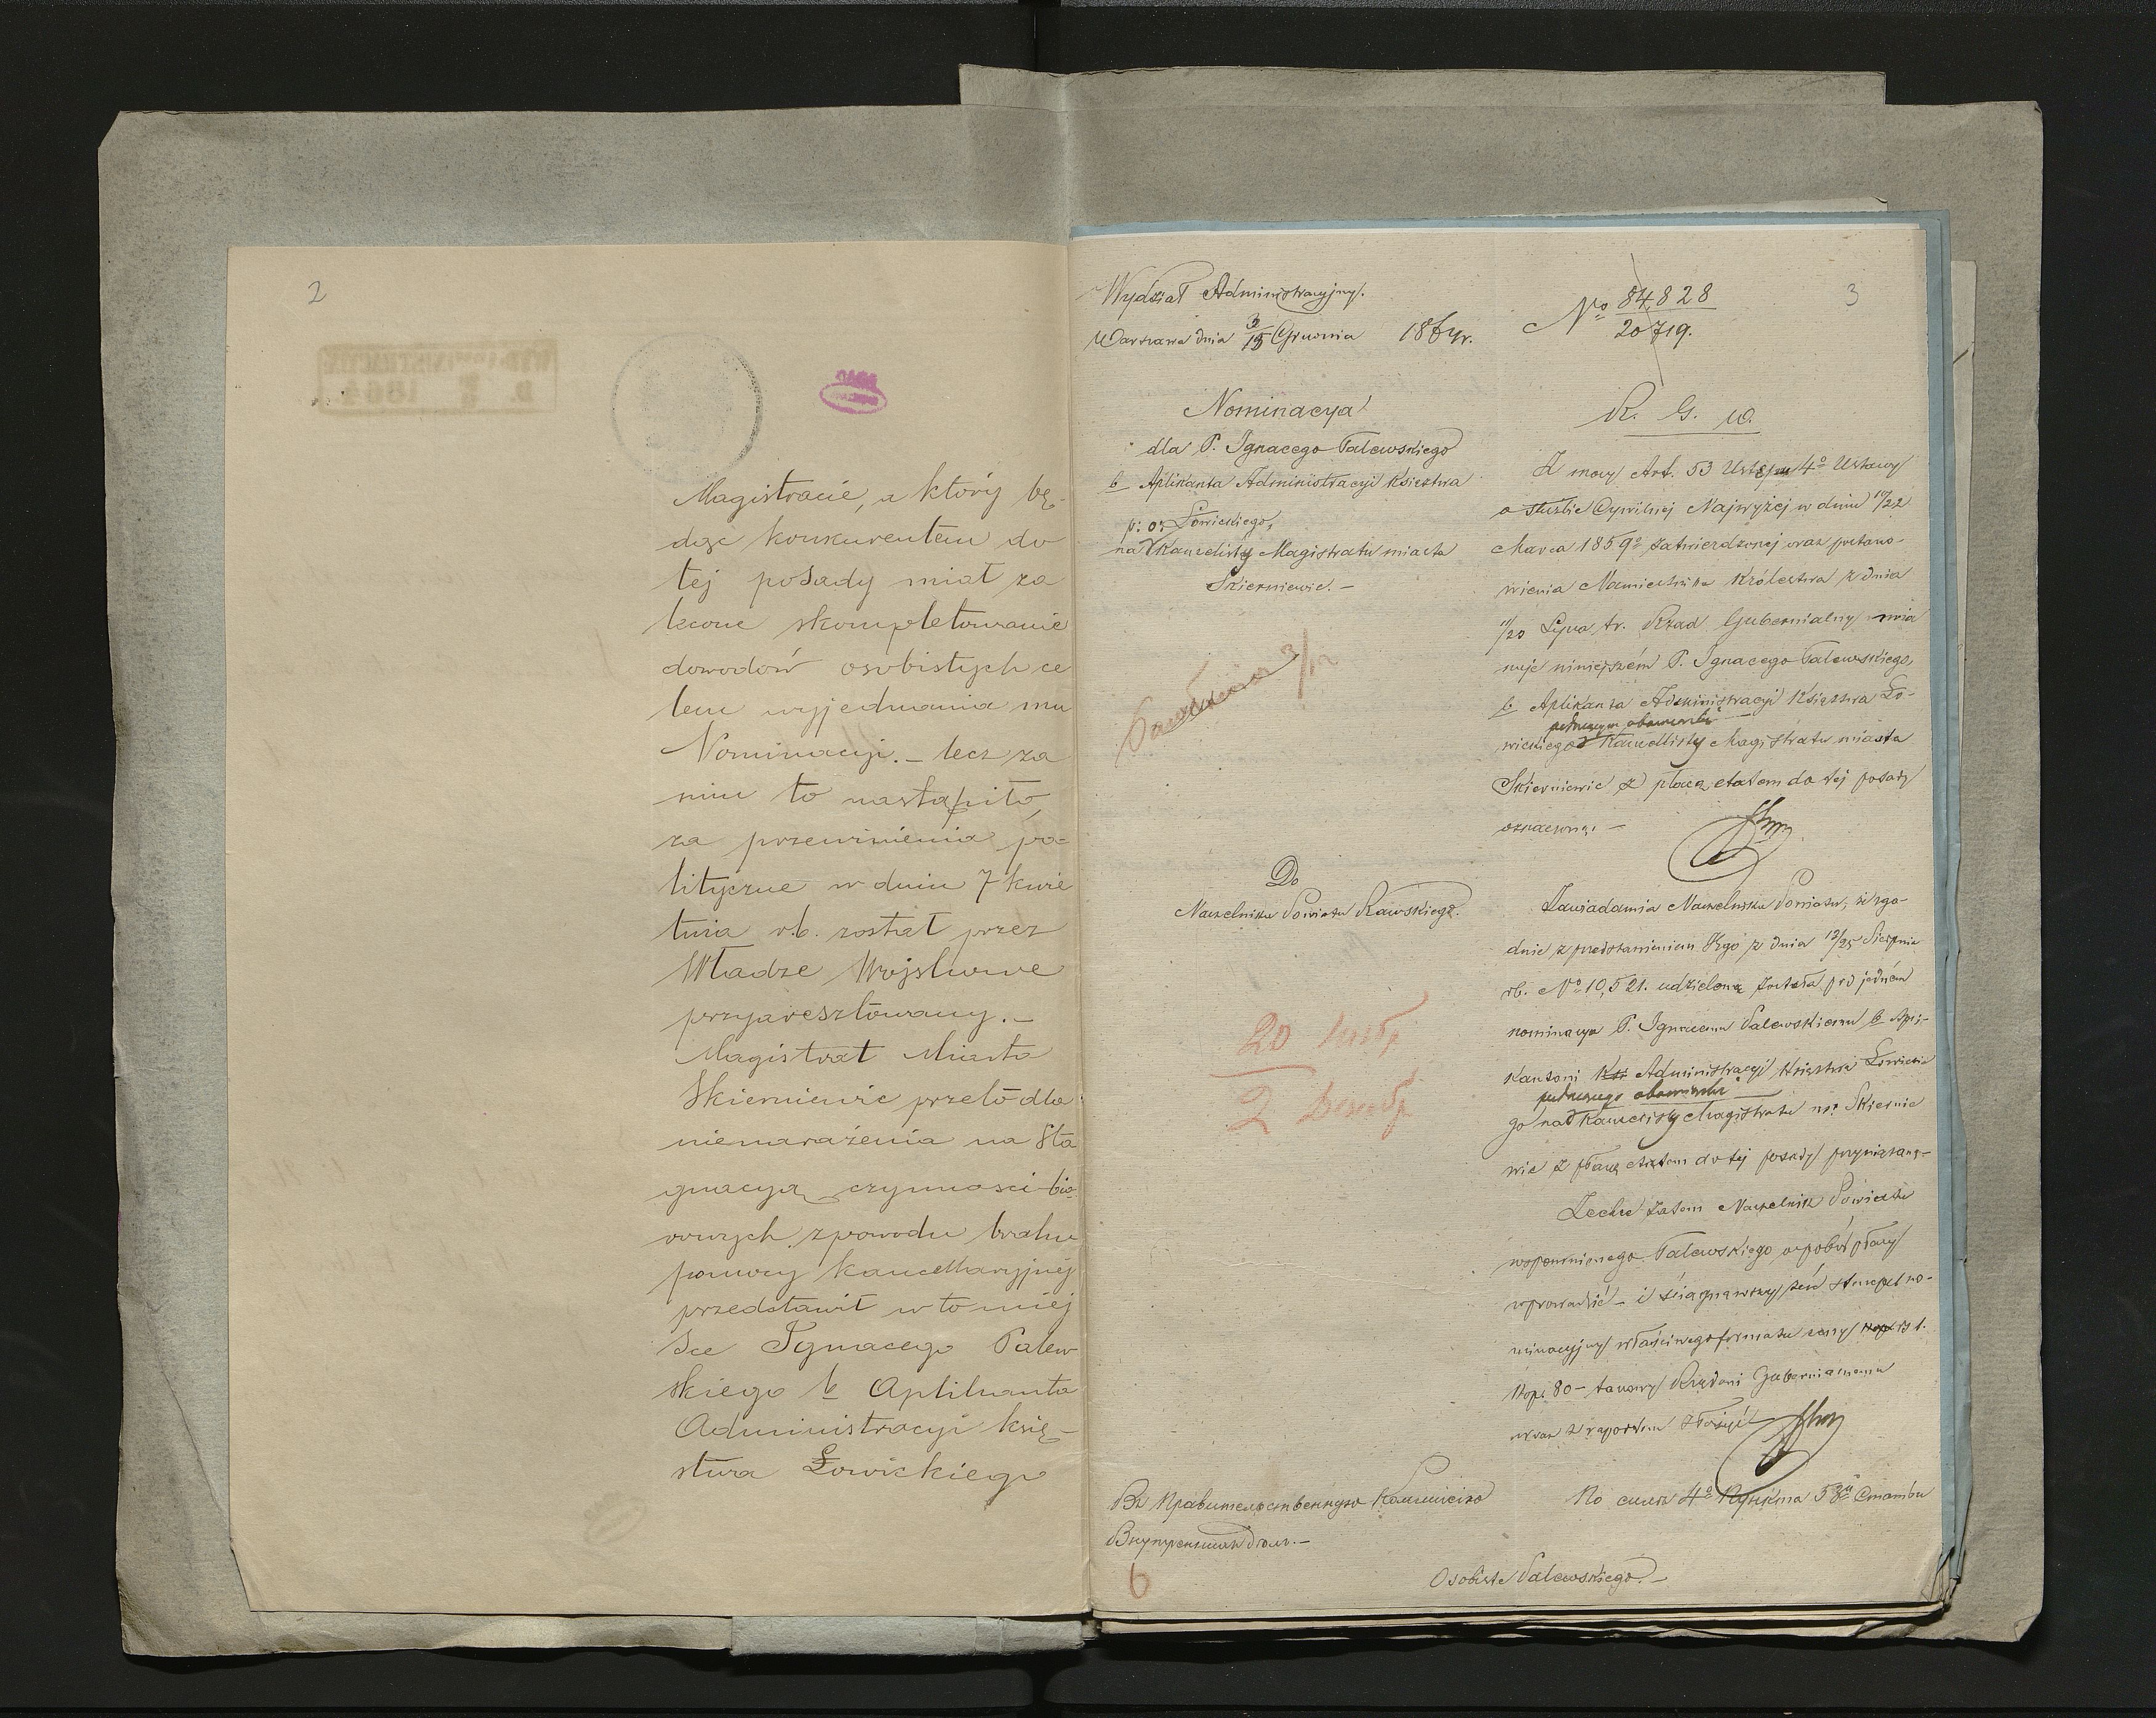 2
Magistracie, a który bę-
dąc konkurentem do
tej posady miał za
lecone skompletowanie
dowodów osobistych ce
lem wyjednania mu
Nominacyi. – lecz za
nim to nastąpiło,
za przewinienia po=
lityczne w dniu 7 kwie
tnia r.b. został przez
Władze Wojskowe
przyaresztowany. –
Magistrat Miasta
Skierniewic przeto dla
nienarażenia na sta
gnacyą czynności biu
rowych z powodu braku
pomocy kancellaryjnej
przedstawił w to miej
sce Ignacego Palew
skiego b Aplikanta
Administracyi księ-
stwa Łowickiego
3
Wydział Administracyjny.
Warszawa dnia 3/15 Grudnia 1864 r.
Nominacya
dla P. Ignacego Palewskiego
b Aplikanta Administracyi Księztwa
Łowickiego,
na p: o: Kancelisty Magistratu miasta
Skierniewic. –
3/12
Do
Naczelnika Powiatu Rawskiego.
20 Ноябр
2 Декабр
Въ Правительственную Коммисію
Внутреннихъ Дѣлъ. –
6
No 84828
20719.
R. G. W.
Z mocy Art. 53 Ustępu 4o Ustawy
o służbie Cywilnej Najwyżej w dniu 10/22
Marca 1859 r. zatwierdzonej oraz postano-
wienia Namiestnika Królestwa z dnia
11/23 Lipca t.r. Rząd Gubernialny mia
nuje niniejszém P. Ignacego Palewskiego,
b Aplikanta Administracyi Księztwa Ło-
wickiego pełniącym obowiązki Kancellisty Magistratu miasta
Skierniewic z płacą etatem do tej posady
oznaczoną. –
Zawiadamia Naczelnika Powiatu, iż zgo-
dnie z przedstawieniem Jego z dnia 13/25 Sierpnia
rb. No 10,521. udzieloną została pod jedném
nominacya P. Ignacemu Palewskiemu b Apli-
kantowi Administracyi Księztwa Łowickie
go na pełniącego obowiązki Kancelisty Magistratu m. Skiernie
wic z płacą etatem do tej posady przywiązaną –
Zechce zatem Naczelnik Powiatu
wspomnionego Palewskiego w pobór płacy
wprowadzić – i ściągnąwszy zeń stempel no-
minacyjny właściwego formatu ceny rs 1.
kop. 80 – takowy Rządowi Gubernialnemu
wraz z raportem złożyć
По силѣ 4го Пункта 53й Статьи
Osobiste Palewskiego. –